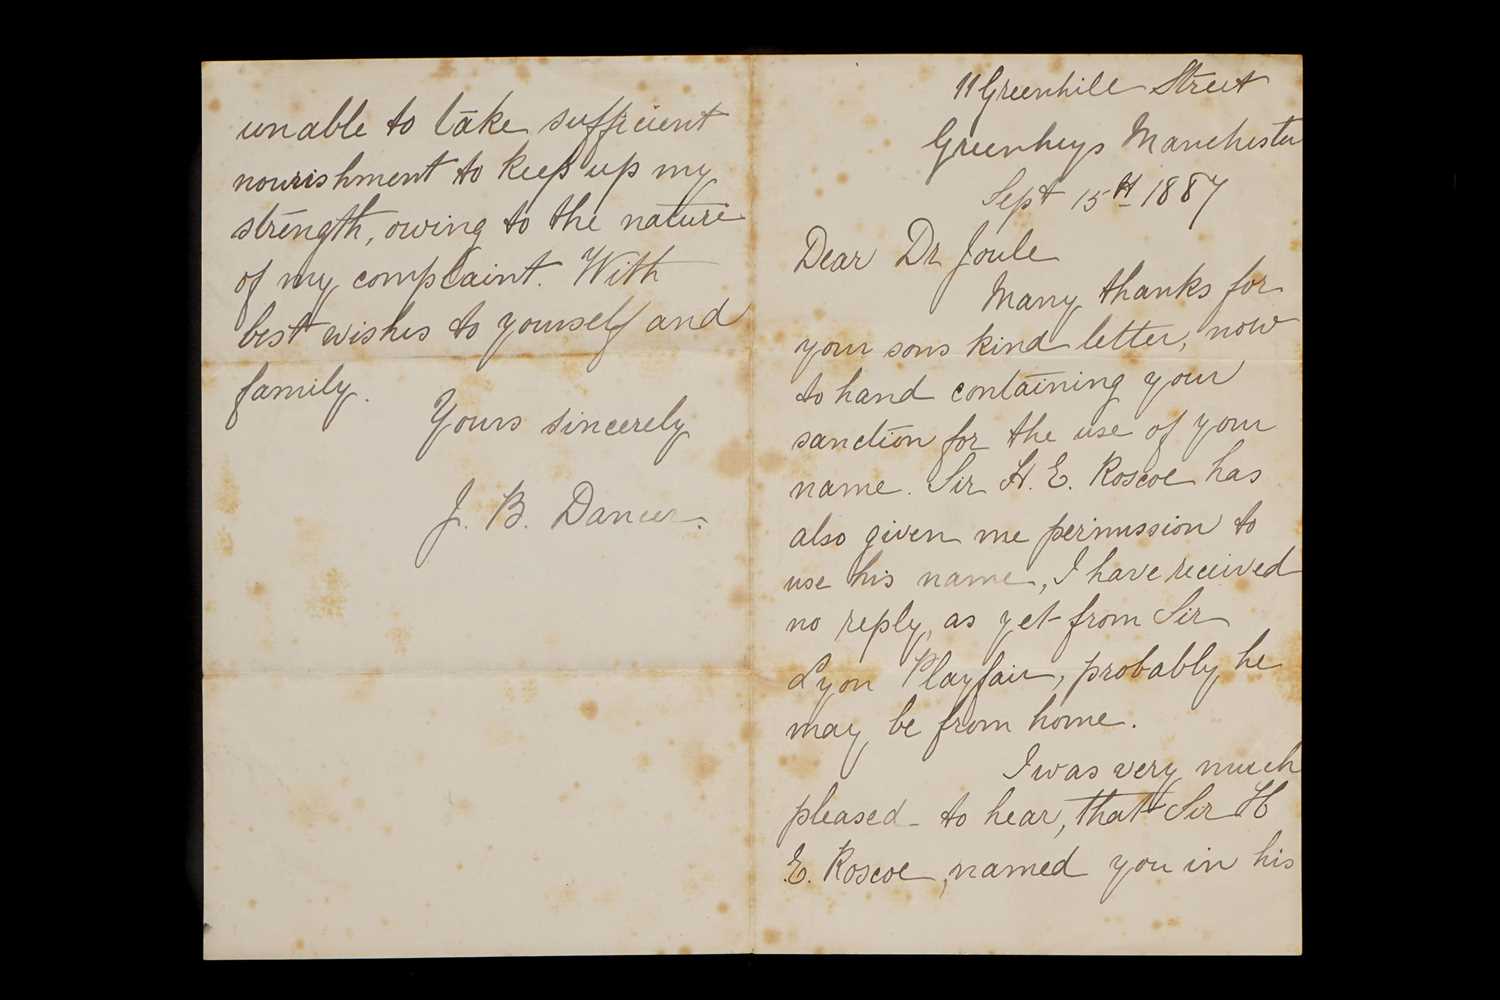 11 Greenhill Street
Greenheys Manchester
Sept 15th 1887
Dear Dr Joule
Many thanks for
your sons kind letter, now
to hand containing your
sanction for the use of your
name. Sir H. E. Roscoe has
also given me permission to
use his name, I have received
no reply, as yet from Sir
Lyon Playfair, probably he
may be from home.
I was very much
pleased to hear, that Sir H
E. Roscoe, named you in his
unable to take sufficient
nourishment to keep up my
strength, owing to the nature
of my complaint. With
best wishes to yourself and
family.
Yours sincerely
J. B. Dancer.